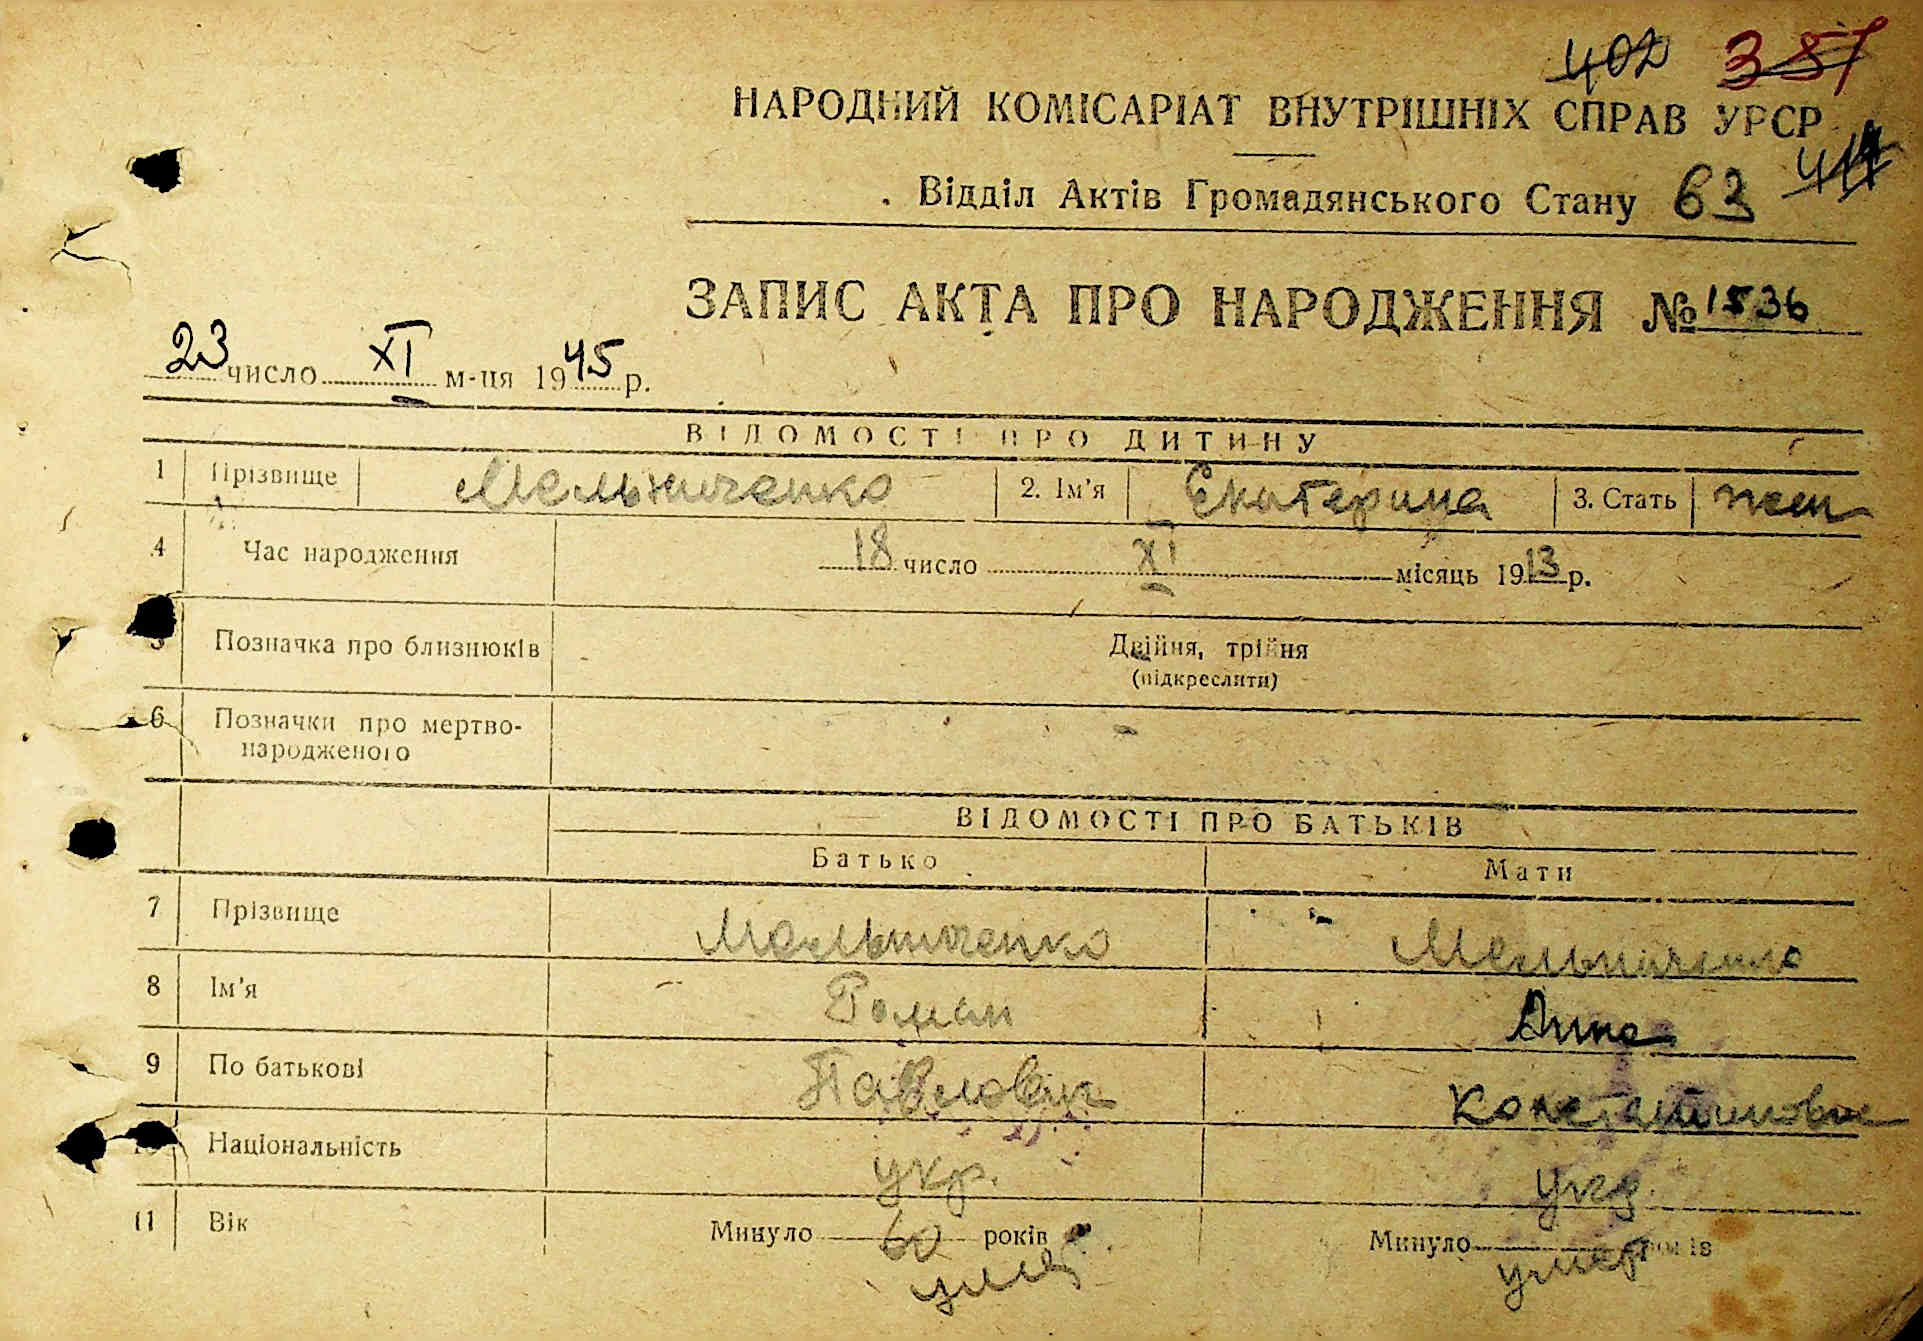 402 351
НАРОДНИЙ КОМІСАРІАТ ВНУТРІШНІХ СПРАВ УРСР
Відділ Актів Громадянського Стану 63
ЗАПИС АКТА ПРО НАРОДЖЕННЯ № 1536
23 число XI м-ця 1945 р.
ВІДОМОСТІ ПРО ДИТИНУ
1 Прізвище Мельниченко 2. Ім'я Екатерина 3. Стать жен
4 Час народження 18 число XI місяць 1913 р.
5 Позначка про близнюків Двійня, трійня
(підкреслити)
6 Позначки про мертво-
народженого
ВІДОМОСТІ ПРО БАТЬКІВ
Батько Мати
7 Прізвище Мельниченко Мельниченко
8 Ім'я Роман Анна
9 По батькові Павлович Константиновна
10 Національність укр. укр.
11 Вік Минуло 60 років Минуло років
умер умер